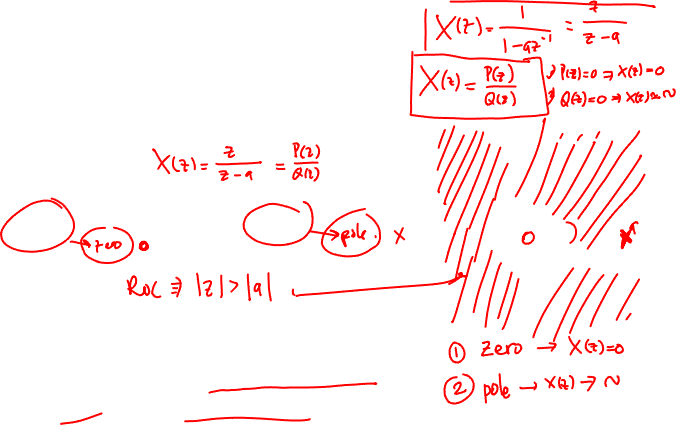 X(z) = 1 / (1 - az⁻¹) = z / (z - a)
X(z) = P(z) / Q(z)
P(z)=0 ⇒ X(z)=0
Q(z)=0 ⇒ X(z)=∾
X(z) = z / (z - a) = P(z) / Q(z)
→ zero o
→ pole. x
ROC ⇒ |z| > |a|
① Zero → X(z)=0
② pole → X(z) → ∾